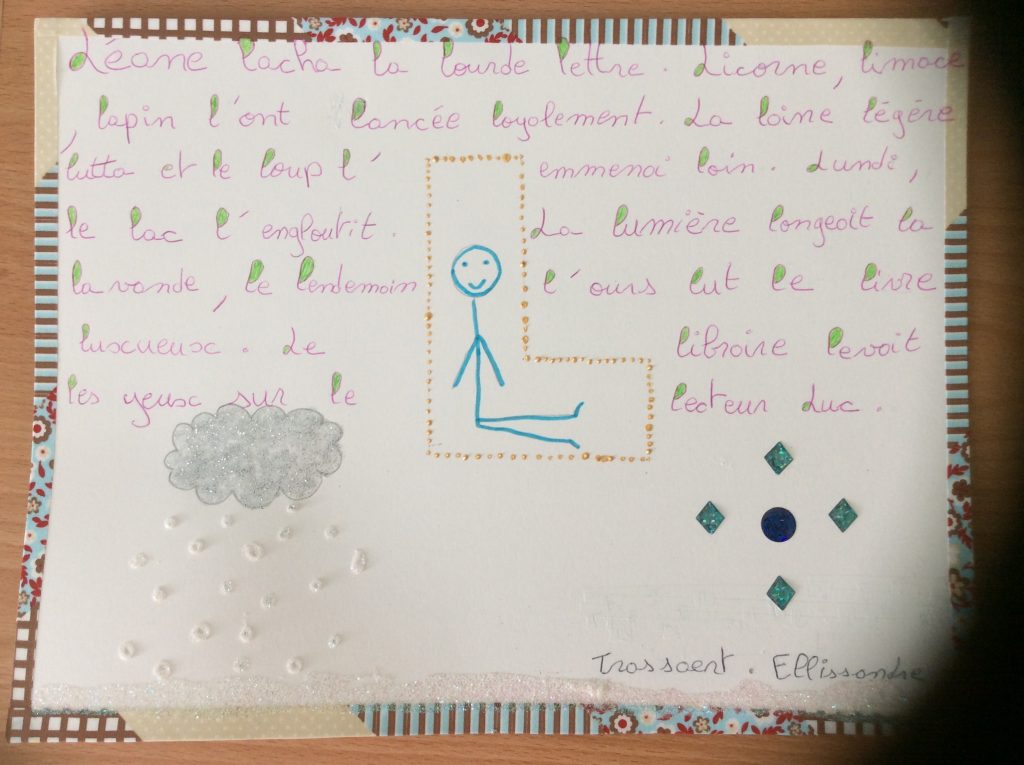 Léane lacha la lourde lettre. Licorne, limace
, lapin l'ont lancée loyalement. La laine légére
lutta et le loup l' emmenai loin. Lundi,
le lac l'engloutit. La lumière longeait la
lavande, le lendemain l'ours lut le livre
luxueux. Le libraire levait
les yeux sur le lecteur Luc.
Trassaert. Ellissandre